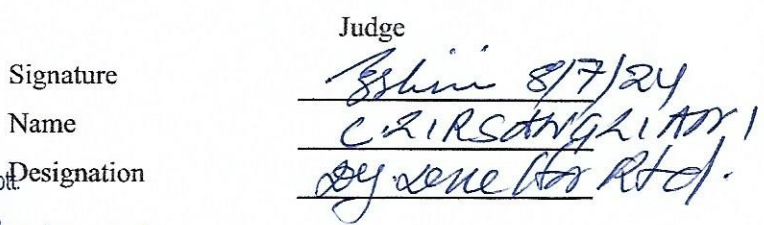 Judge
Signature 8/7/24
Name C. ZIRSANGZLIANI
ott. Designation Dy. Director Rtd.